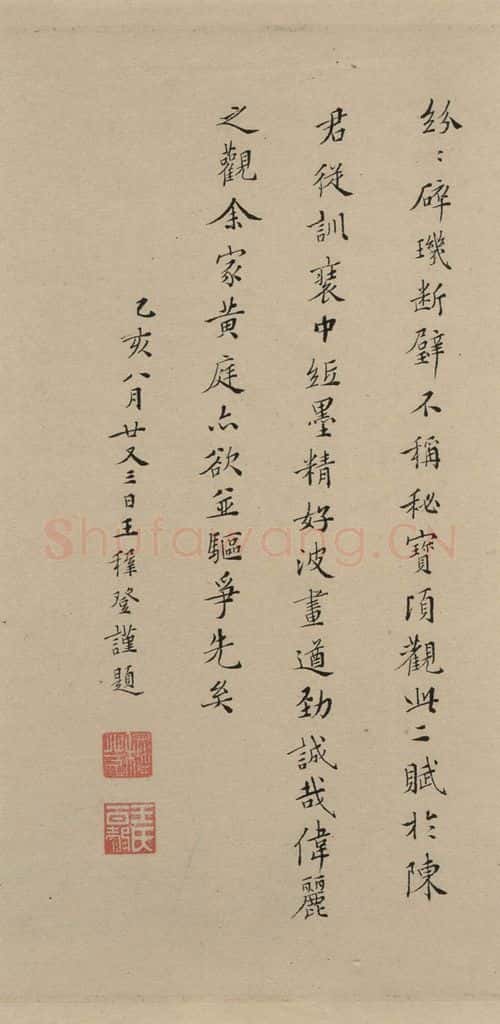 紛〻碎璣断璧不稱秘寶頃觀此二賦於陳
君從訓袠中紙墨精好波畫遒勁誠哉偉麗
之觀余家黄庭亦欲並驅爭先矣
己亥八月廿又三日王穉登謹題
王氏百穀
Shufawang.CN